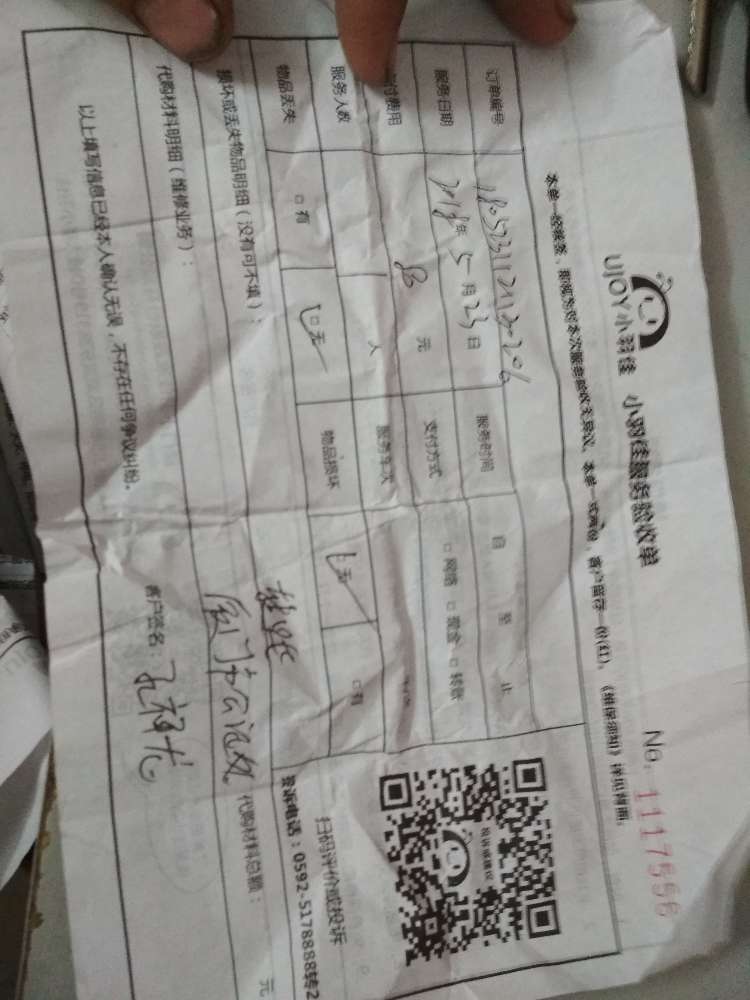 UJOY小羽佳 小羽佳服务验收单
No. 1117556
本单一经接签，即视为对本次服务验收无异议。本单一式两份，客户留存一份(红)。《维保须知》详见背面。
订单编号 服务时间 自 至 止
服务日期 2018年5月23日 支付方式 □网络 □现金 □转账
付费用 80元 服务车次
服务人数 1人
物品丢失 □有 □无 物品损坏 □无 □有
损坏或丢失物品明细（没有可不填）：
代购材料明细（维修业务）：
厦门市 代购材料总额： 元
以上填写信息已经本人确认无误，不存在任何争议纠纷。
客户签名：孔祥龙
投诉或建议
扫码评价或投诉
投诉电话：0592-5178888转2